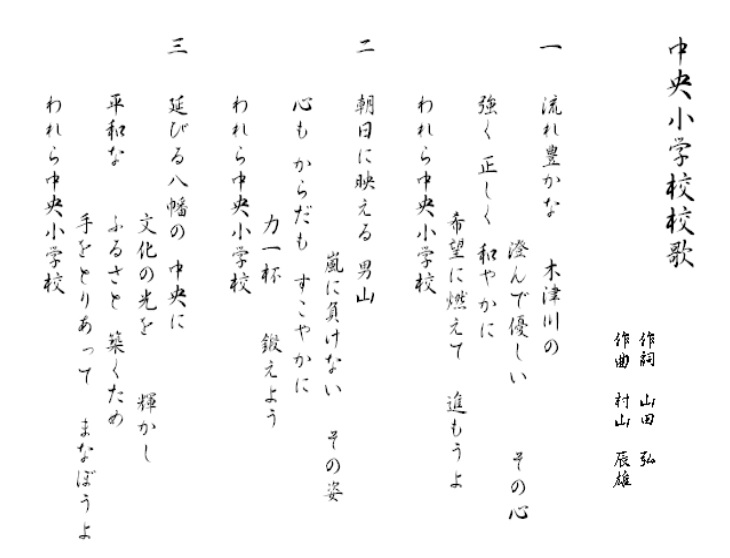 中央小学校校歌
作詞 山田 弘
作曲 村山 辰雄
一 流れ豊かな 木津川の
澄んで優しい その心
強く 正しく 和やかに
希望に燃えて 進もうよ
われら中央小学校
二 朝日に映える 男山
嵐に負けない その姿
心も からだも すこやかに
力一杯 鍛えよう
われら中央小学校
三 延びる八幡の 中央に
文化の光を 輝かし
平和な ふるさと 築くため
手をとりあって まなぼうよ
われら中央小学校